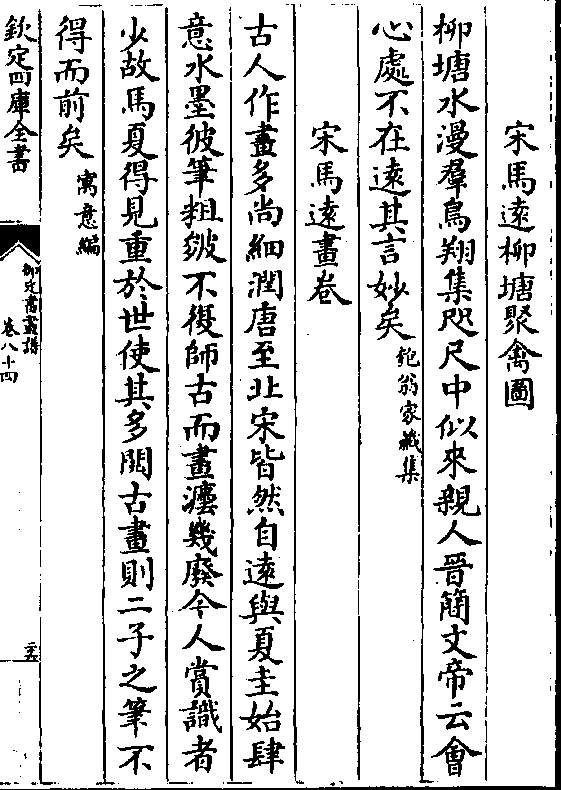 宋馬遠柳塘聚禽圖
柳塘水漫羣鳥翔集咫尺中似来親人晉簡文帝云會
心處不在逺其言妙矣匏翁家藏集
宋馬逺畫卷
古人作畫多尚細潤唐至北宋皆然自逺與夏圭始肆
意水墨彼筆粗皴不復師古而畫灋幾廢今人賞識者
少故馬夏得見重於世使其多閱古畫則二子之筆不
得而前矣寓意編
欽定四庫全書
御定書畫譜
卷八十四